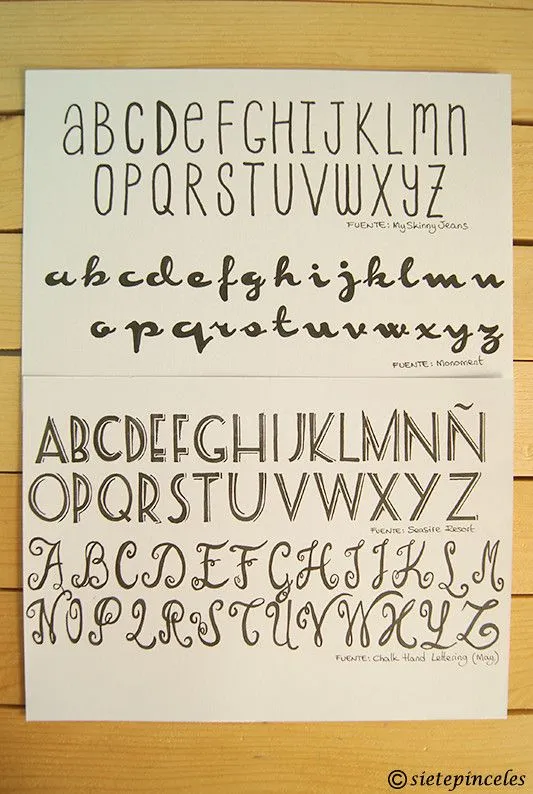 aBCDeFGHIJKLmn
OPQRSTUVWXYZ
FUENTE: MySkinnyJeans
abcdefghijklmn
opqrstuvwxyz
FUENTE: Monoment
ABCDEFGHIJKLMNÑ
OPQRSTUVWXYZ
FUENTE: Seaside Resort
ABCDEFGHIJKLM
NOPQRSTUVWXYZ
FUENTE: Chalk Hand Lettering (May.)
© sietepinceles